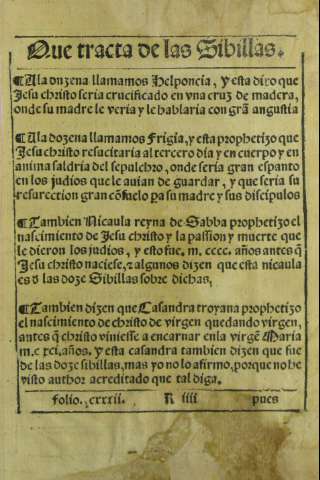 Que tracta de las Sibillas.
¶A la onzena llamamos Helponcia, y esta dixo que
Jesu christo seria crucificado en vna cruz de madera,
onde su madre le veria y le hablaria con grã angustia
¶A la dozena llamamos Frigia, y esta prophetizo que
Jesu christo resucitaria al tercero dia y en cuerpo y en
anima saldria del sepulchro, onde seria gran espanto
en los judios que le auian de guardar, y que seria su
resurection gran cõsuelo pa su madre y sus discipulos
¶Tambien Nicaula reyna de Sabba prophetizo el
nascimiento de Jesu christo y la passion y muerte que
le dieron los judios, y esto fue, m. cccc. años antes q̃
Jesu christo naciese, ⁊ algunos dizen que esta nicaula
es d̓ las doze Sibillas sobre dichas,
¶Tambien dizen que Casandra troyana prophetizo
el nascimiento de christo de virgen quedando virgen,
antes q̃ christo viniesse a encarnar enla virgẽ Maria
m.c xci. años. y esta casandra tambien dizen que fue
de las doze sibillas, mas yo no lo afirmo, porque no he
visto author acreditado que tal diga.
folio. cxxxii. R iiii pues